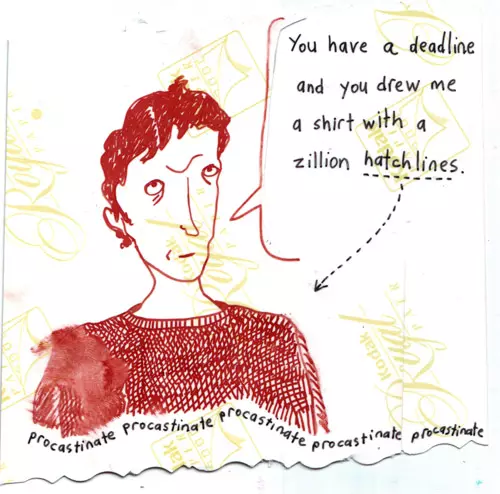 You have a deadline
and you drew me
a shirt with a
zillion hatchlines.
procastinate procastinate procastinate procastinate procastinate
Kodak